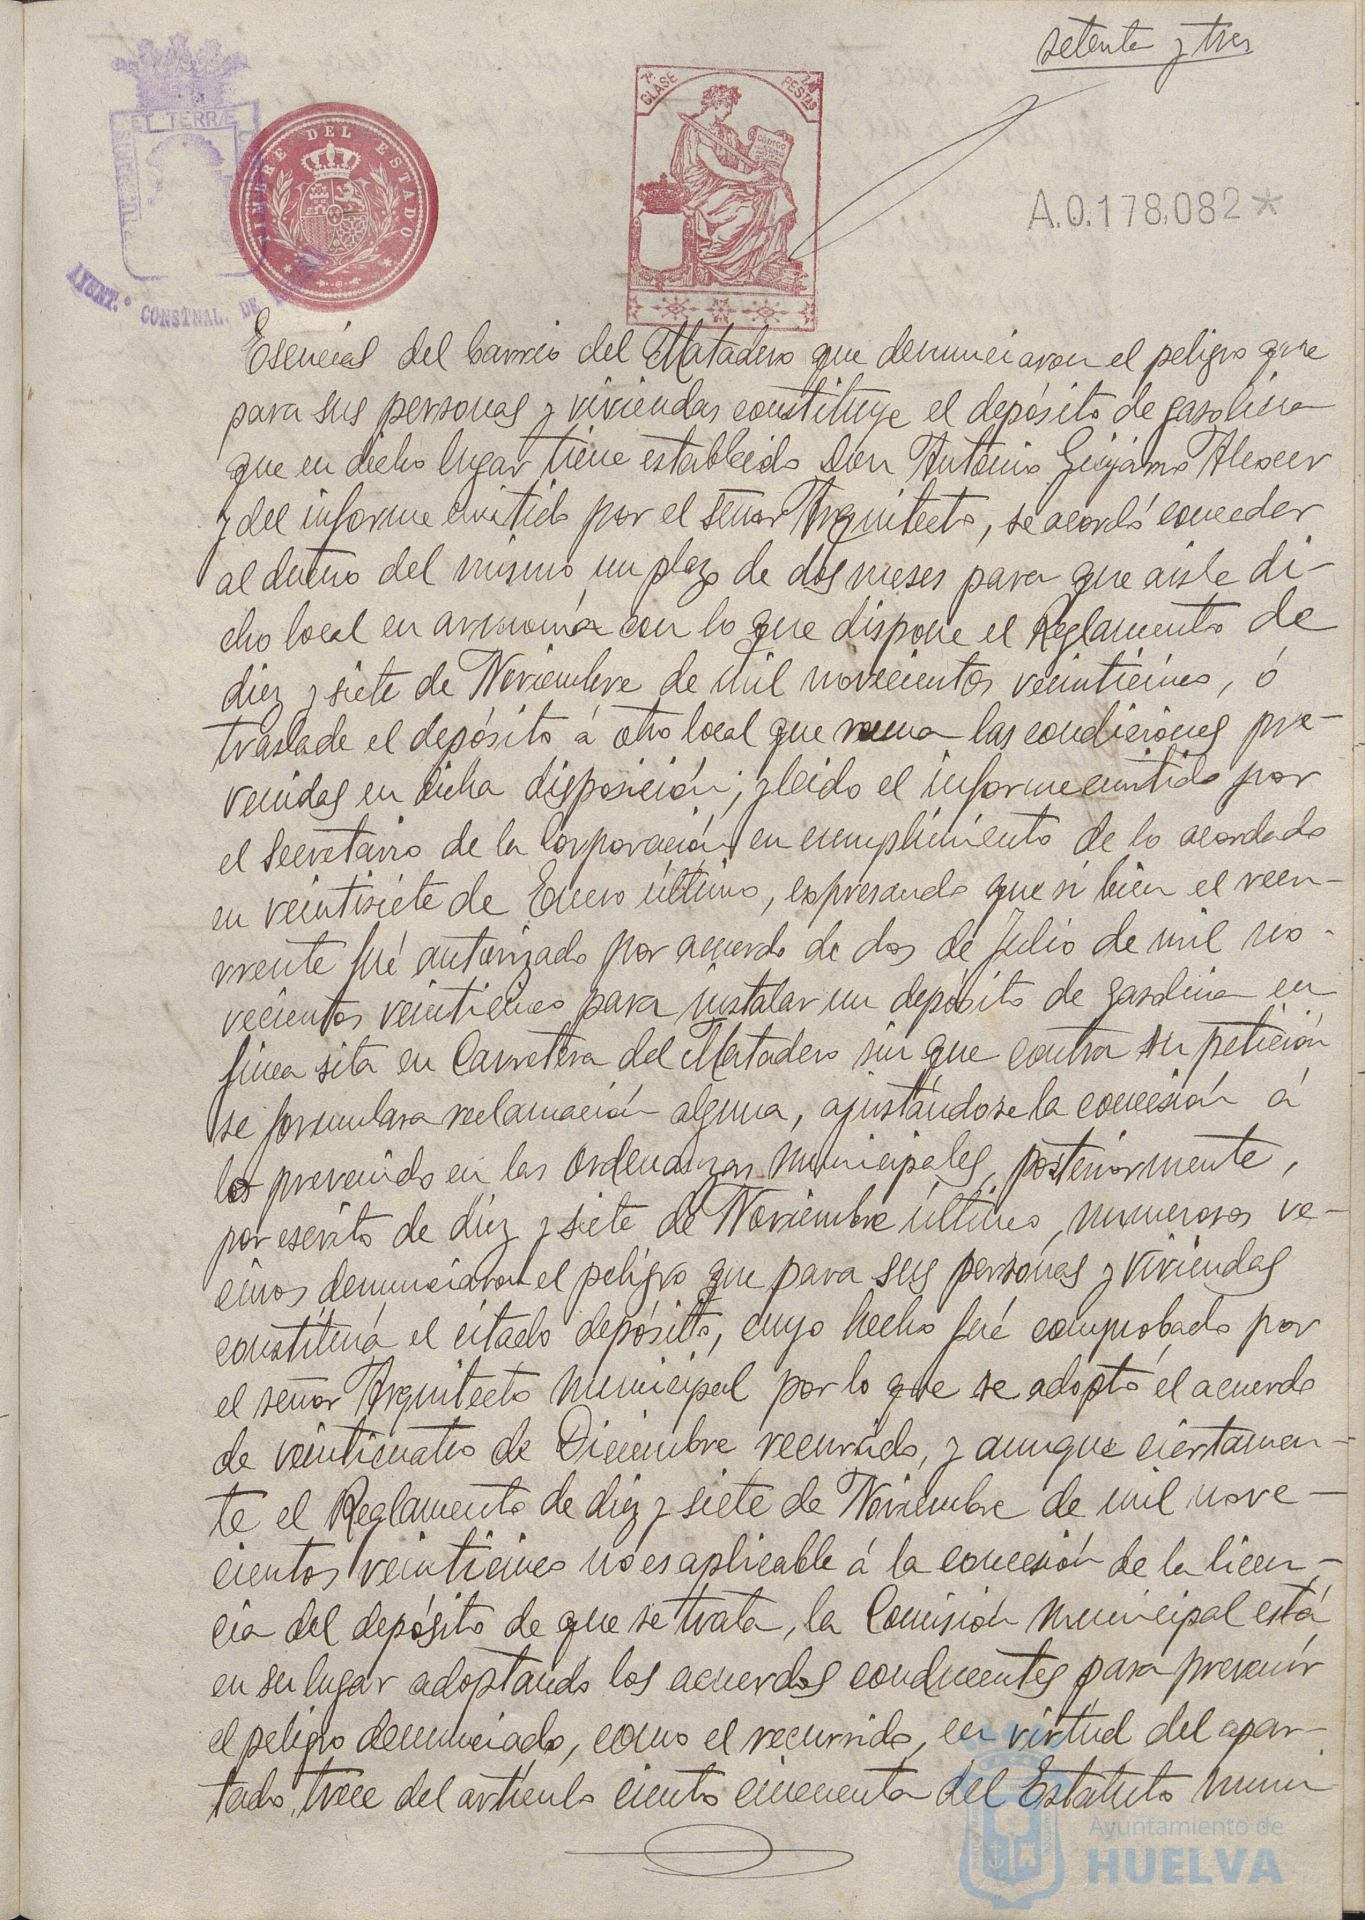 setenta y tres
7ª CLASE
PESTAS
CÓDIGO
A.0.178.082*
ET TERRÆ
TIMBRE DEL ESTADO
AYUNT.º CONSTNAL. DE
del barrio del Matadero que denunciaron el peligro que
para sus personas y viviendas constituye el depósito de gasolina
que en dicho lugar tiene establecido Don Antonio Guijarro Alcocer
y del informe emitido por el señor Arquitecto, se acordó conceder
al dueño del mismo un plazo de dos meses para que aisle di-
cho local en armonía con lo que dispone el Reglamento de
diez y siete de Noviembre de mil novecientos veinticinco, ó
traslade el depósito á otro local que reuna las condiciones pre-
venidas en dicha disposición; y leido el informe emitido por
el Secretario de la Corporación en cumplimiento de lo acordado
en veintisiete de Enero último, expresando que si bien el recu-
rrente fué autorizado por acuerdo de dos de Julio de mil no-
vecientos veinticinco para instalar un depósito de gasolina en
finca sita en Carretera del Matadero sin que contra su petición
se formulara reclamación alguna, ajustándose la concesión á
lo prevenido en las Ordenanzas municipales, posteriormente,
por escrito de diez y siete de Noviembre último, numerosos ve-
cinos denunciaron el peligro que para sus personas y viviendas
constituía el citado depósito, cuyo hecho fué comprobado por
el señor Arquitecto municipal por lo que se adoptó el acuerdo
de veinticuatro de Diciembre recurrido, y aunque ciertamen-
te el Reglamento de diez y siete de Noviembre de mil nove-
cientos veinticinco no es aplicable á la concesión de la licen-
cia del depósito de que se trata, la Comisión municipal está
en su lugar adoptando los acuerdos conducentes para prevenir
el peligro denunciado, como el recurrido, en virtud del apar-
tado trece del artículo ciento cincuenta del Estatuto muni
Ayuntamiento de
HUELVA